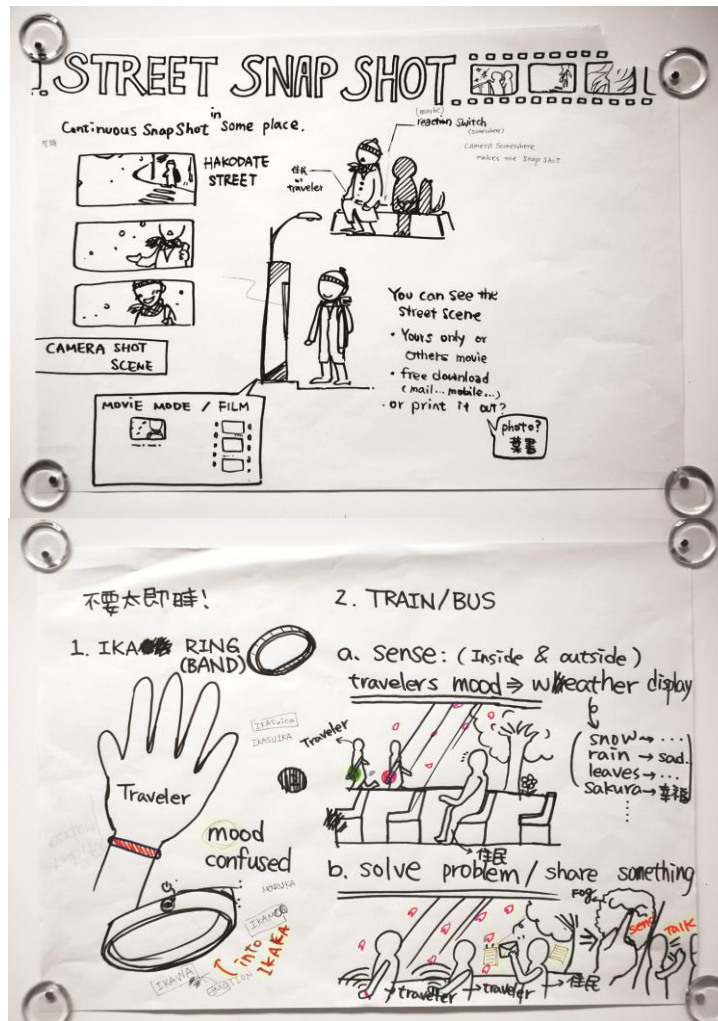 STREET SNAP SHOT
Continuous Snap Shot in some place.
HAKODATE
STREET
住民
or
traveler
(music)
reaction switch
(somewhere)
Camera Somewhere
makes the Snap Shot
CAMERA SHOT
SCENE
MOVIE MODE / FILM
You can see the
Street Scene
• Yours only or
others movie
• free download
(mail... mobile...)
• or print it out?
photo?
葉書
不要太即時!
1. IKA RING
(BAND)
Traveler
IKASUICA
IKASUIKA
mood
confused
NORUKA
IKANO
IKAWA
into
IKAKA
2. TRAIN/BUS
a. sense: (Inside & outside)
travelers mood ⇒ weather display
snow → ...
rain → sad.
leaves → ...
sakura → 幸福
Traveler
住民
b. solve problem / share something
Fog
send
Talk
traveler
traveler
住民